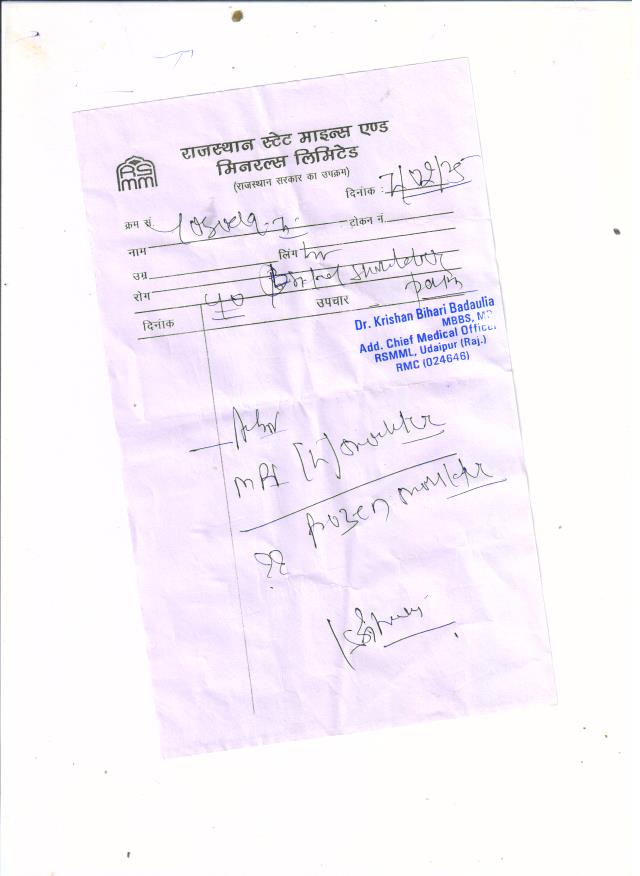 RS
MM
राजस्थान स्टेट माइन्स एण्ड
मिनरल्स लिमिटेड
(राजस्थान सरकार का उपक्रम)
दिनांक : 7/02/25
क्रम सं. टोकन नं.
नाम
लिंग
उम्र
रोग shoulder pain
दिनांक उपचार
Dr. Krishan Bihari Badaulia
MBBS, MD
Add. Chief Medical Officer
RSMML, Udaipur (Raj.)
RMC (024646)
Adv
MRI (L) shoulder
?? frozen shoulder